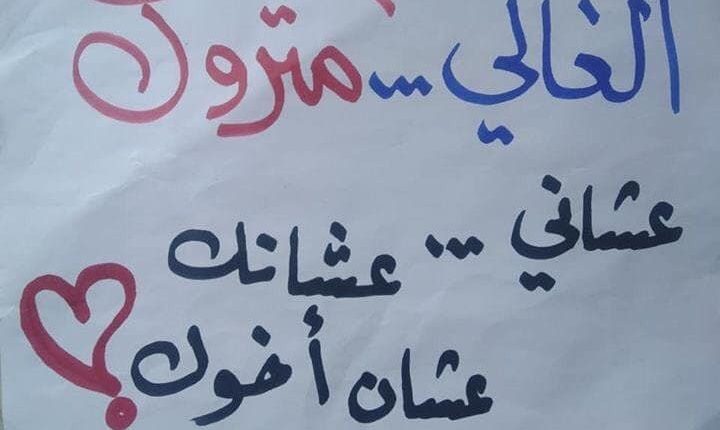 الغالي ... متروك
عشاني ... عشانك
عشان أخوك